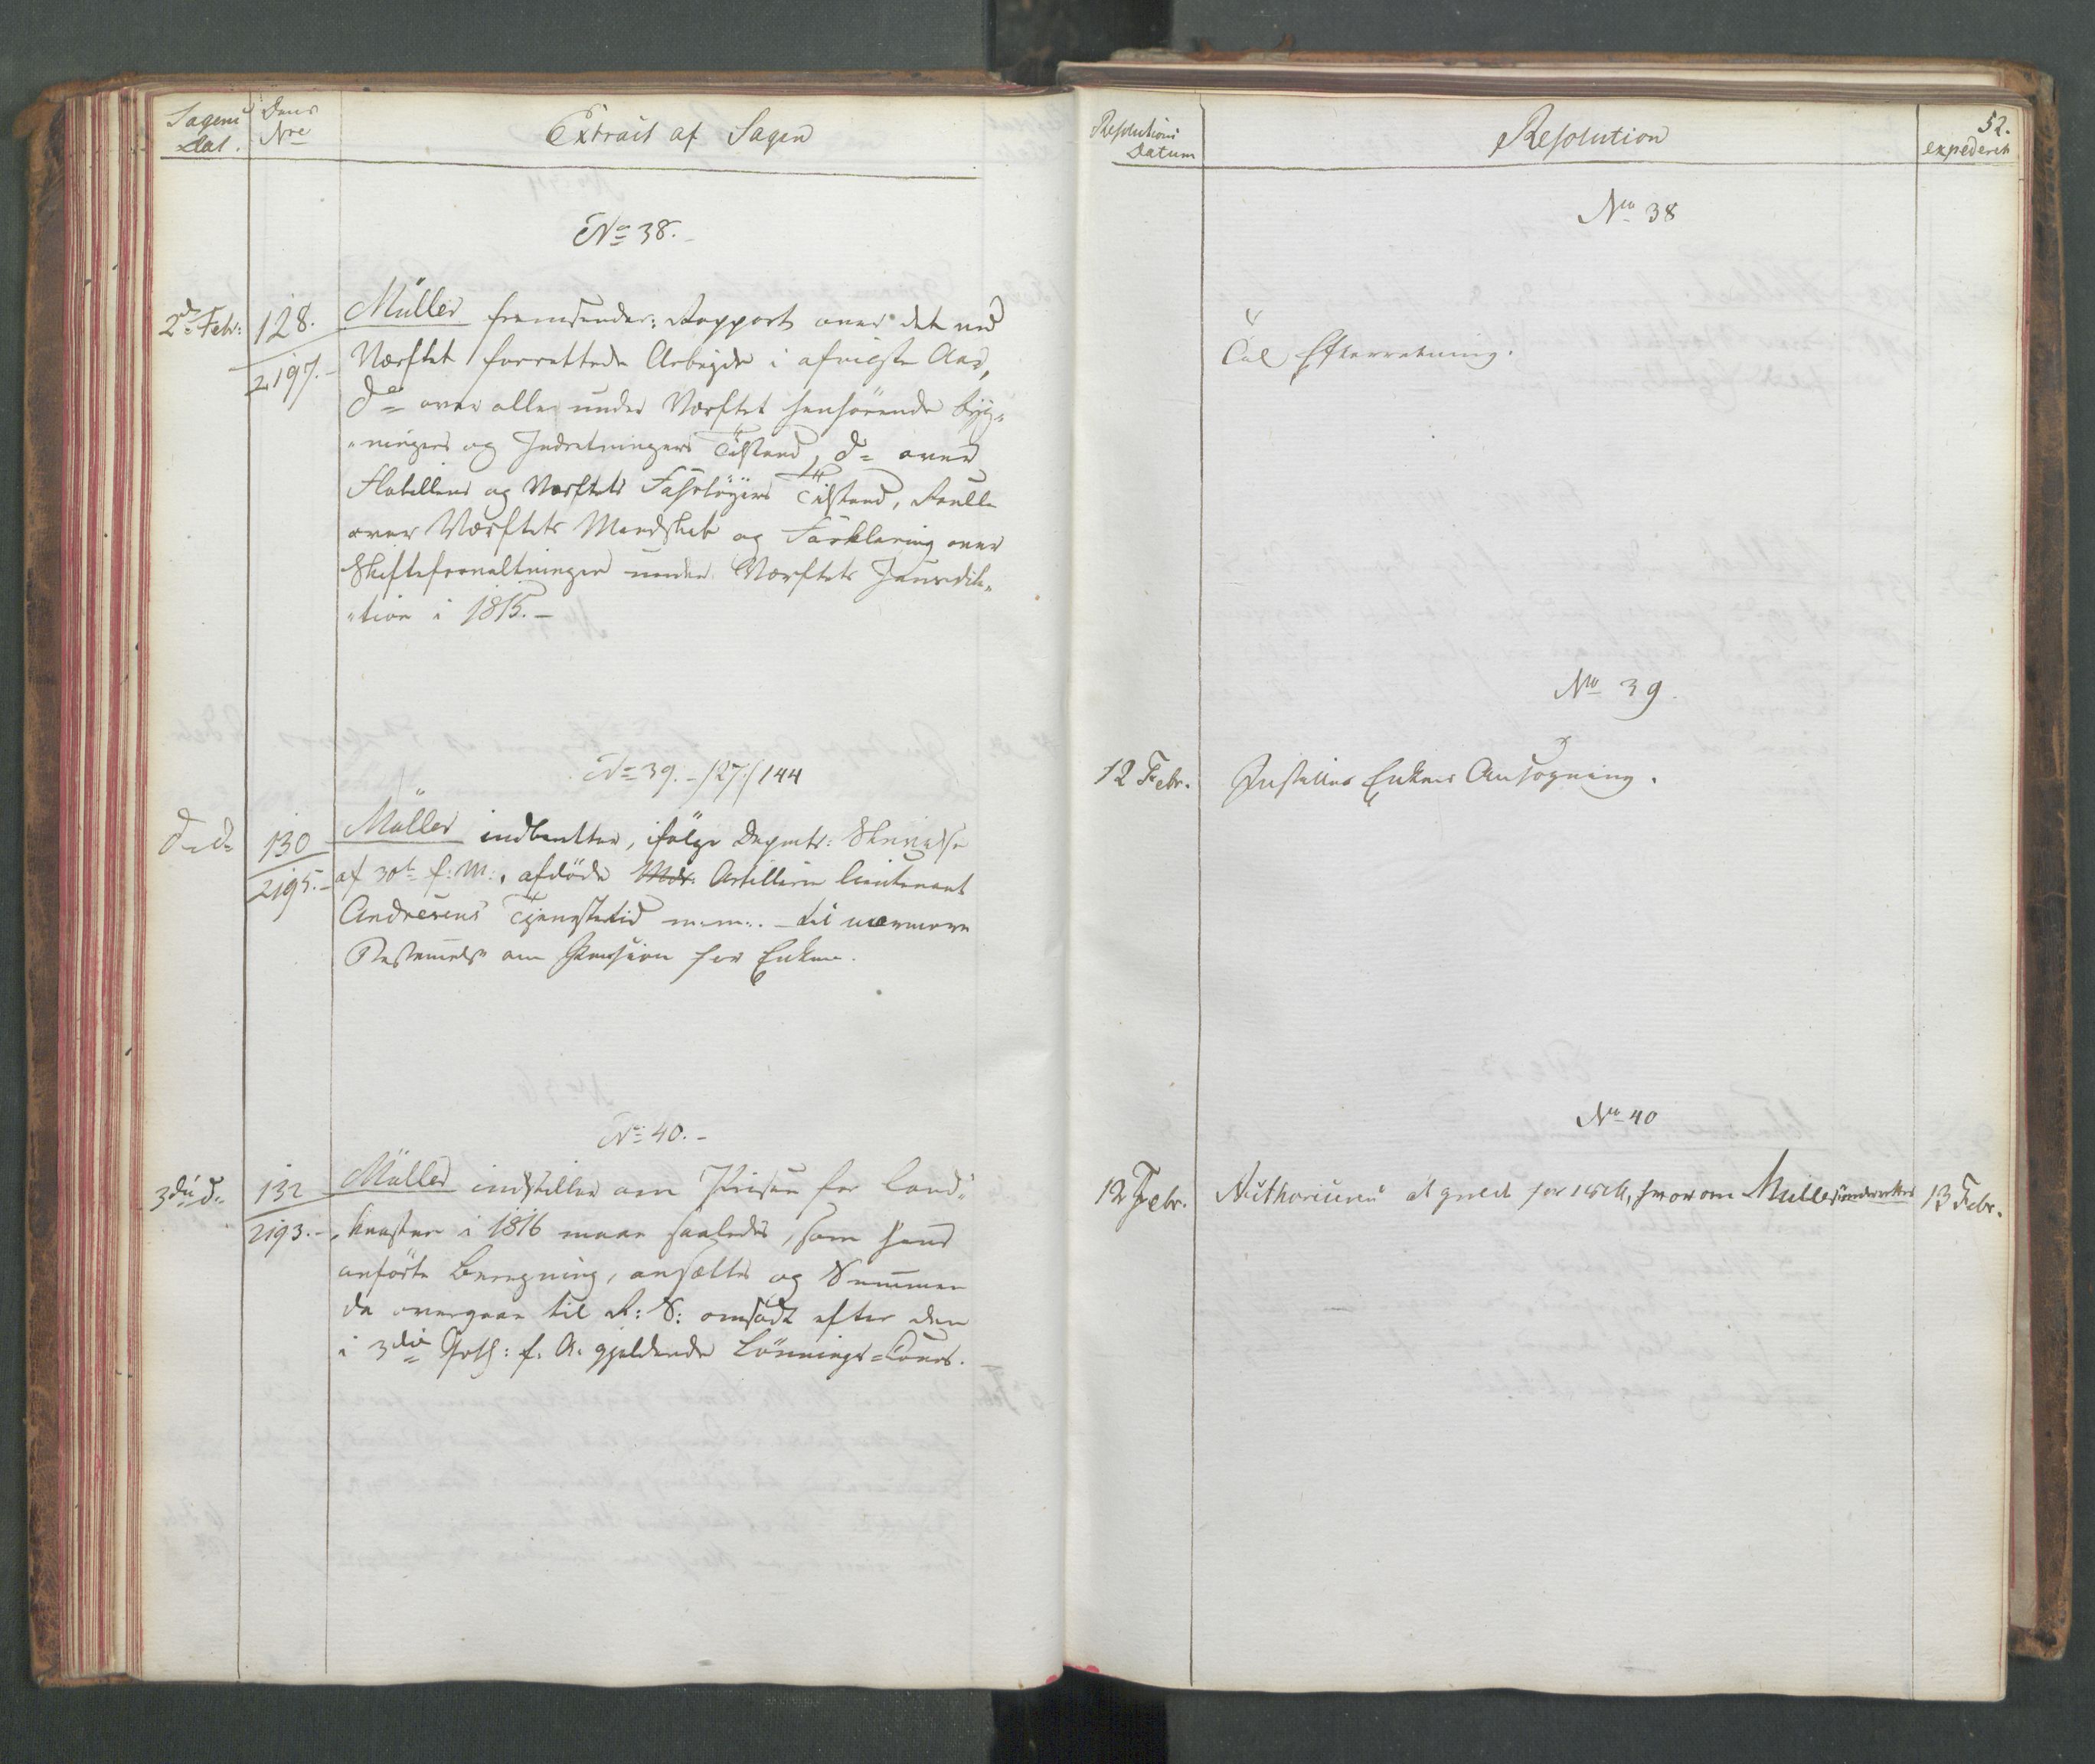 Sagens
Dat.
Dens
Nre
Extrait af Sagen
No 38.
2den Febr: 128.
2197.
Müller fremsender: Rapport over det ved
Værftet forrettede Arbeyde i afvigte Aar,
do over alle under Værftet henhörende Byg-
ningers og Indretningers Tilstand, do over
Flotillens og Værftets Fartöyers Tilstand, Rulle
over Værftets Mandskab og Forklaring over
Skifteforvaltninger under Værftets Jurisdik-
tion i 1815.-
No 39. - /27:/144
d. d. 130
2195.
Müller indberetter, ifölge Depmts: Skrivelse
af 30te f: M:, afdöde Artillerie Lieutenant
Andresens Tjenestetid m:m:. - til nærmere
Bestemmelse om Pension for Enken.
No 40.-
3die d. 132
2193.
Müller indstiller om Prisen for Land-
kosten i 1816 maae saaledes, som hans
anförte Beregning, ansættes og Summen
da overgaae til R: S: omsadt efter den
i 3die Qvth: f. A. gjeldende Lönnings-Cours.
Resolutions
Datum
Resolution
52.
expederet
No 38
Til Efterretning.
No 39.
12 Febr. Indstilles Enkens Ansögning.
No 40
12 Febr. Authoriseres at gjælde for , hvorom Müller underrettes 13 Febr.